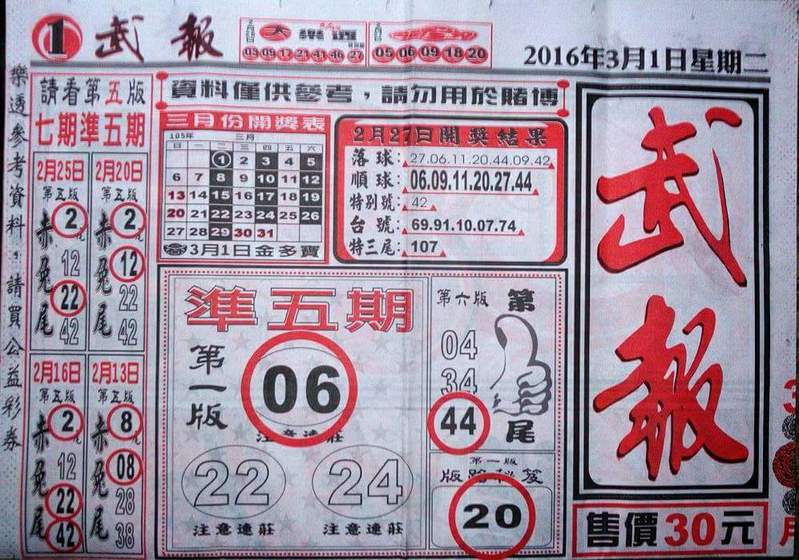 1 武報
03 09 17 21 41 46 27
05 06 09 18 20
2016年3月1日星期二
樂透參考資料,請買公益彩券
請看第五版
七期準五期
2月25日
第五版
赤兔尾
2尾
12
22
42
2月20日
第五版
赤兔尾
2尾
12
22
42
2月16日
第五版
赤兔尾
2尾
12
22
42
2月13日
第五版
赤兔尾
8尾
08
28
38
資料僅供參考,請勿用於賭博
三月份開獎表
105年 三月
日 一 二 三 四 五 六
1 2 3 4 5
6 7 8 9 10 11 12
13 14 15 16 17 18 19
20 21 22 23 24 25 26
27 28 29 30 31
3月1日金多寶
2月27日開獎結果
落球:27.06.11.20.44.09.42
順球:06.09.11.20.27.44
特別號:42
台號:69.91.10.07.74
特三尾:107
準五期
第一版
06
注意連莊
22
注意連莊
24
注意連莊
第六版
第
尾
04
34
44
第一版
版路秘笈
20
武報
售價30元
月